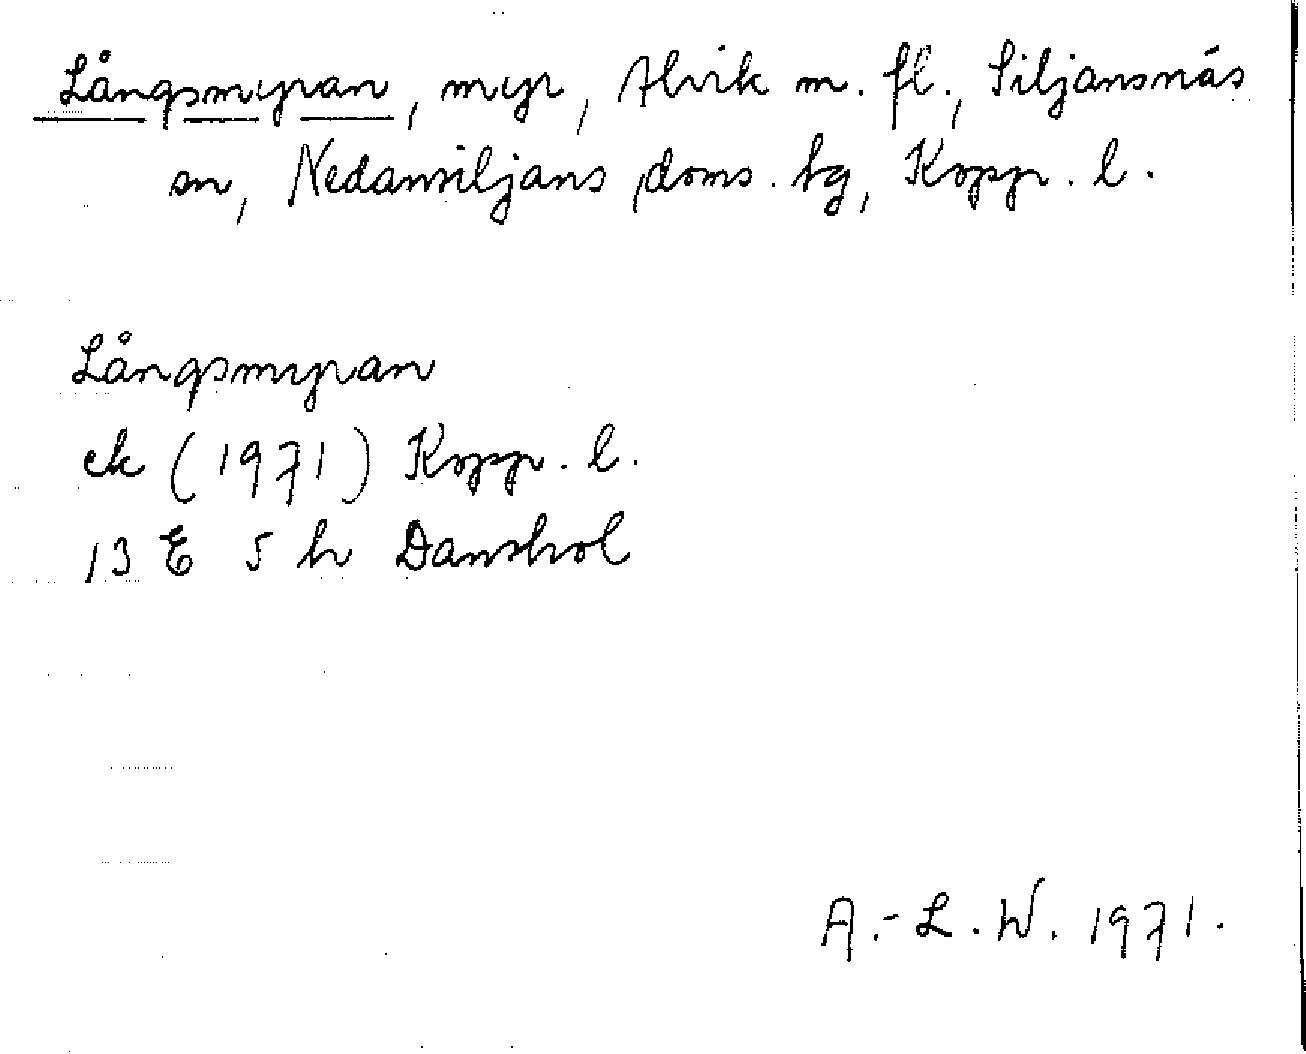 Långsmyran, myr, Alvik m. fl., Siljansnäs
sn, Nedansiljans doms. tg, Kopp. l.
Långsmyran
ek (1971) Kopp. l.
13 E 5 h Danshol
A.-L. W. 1971.